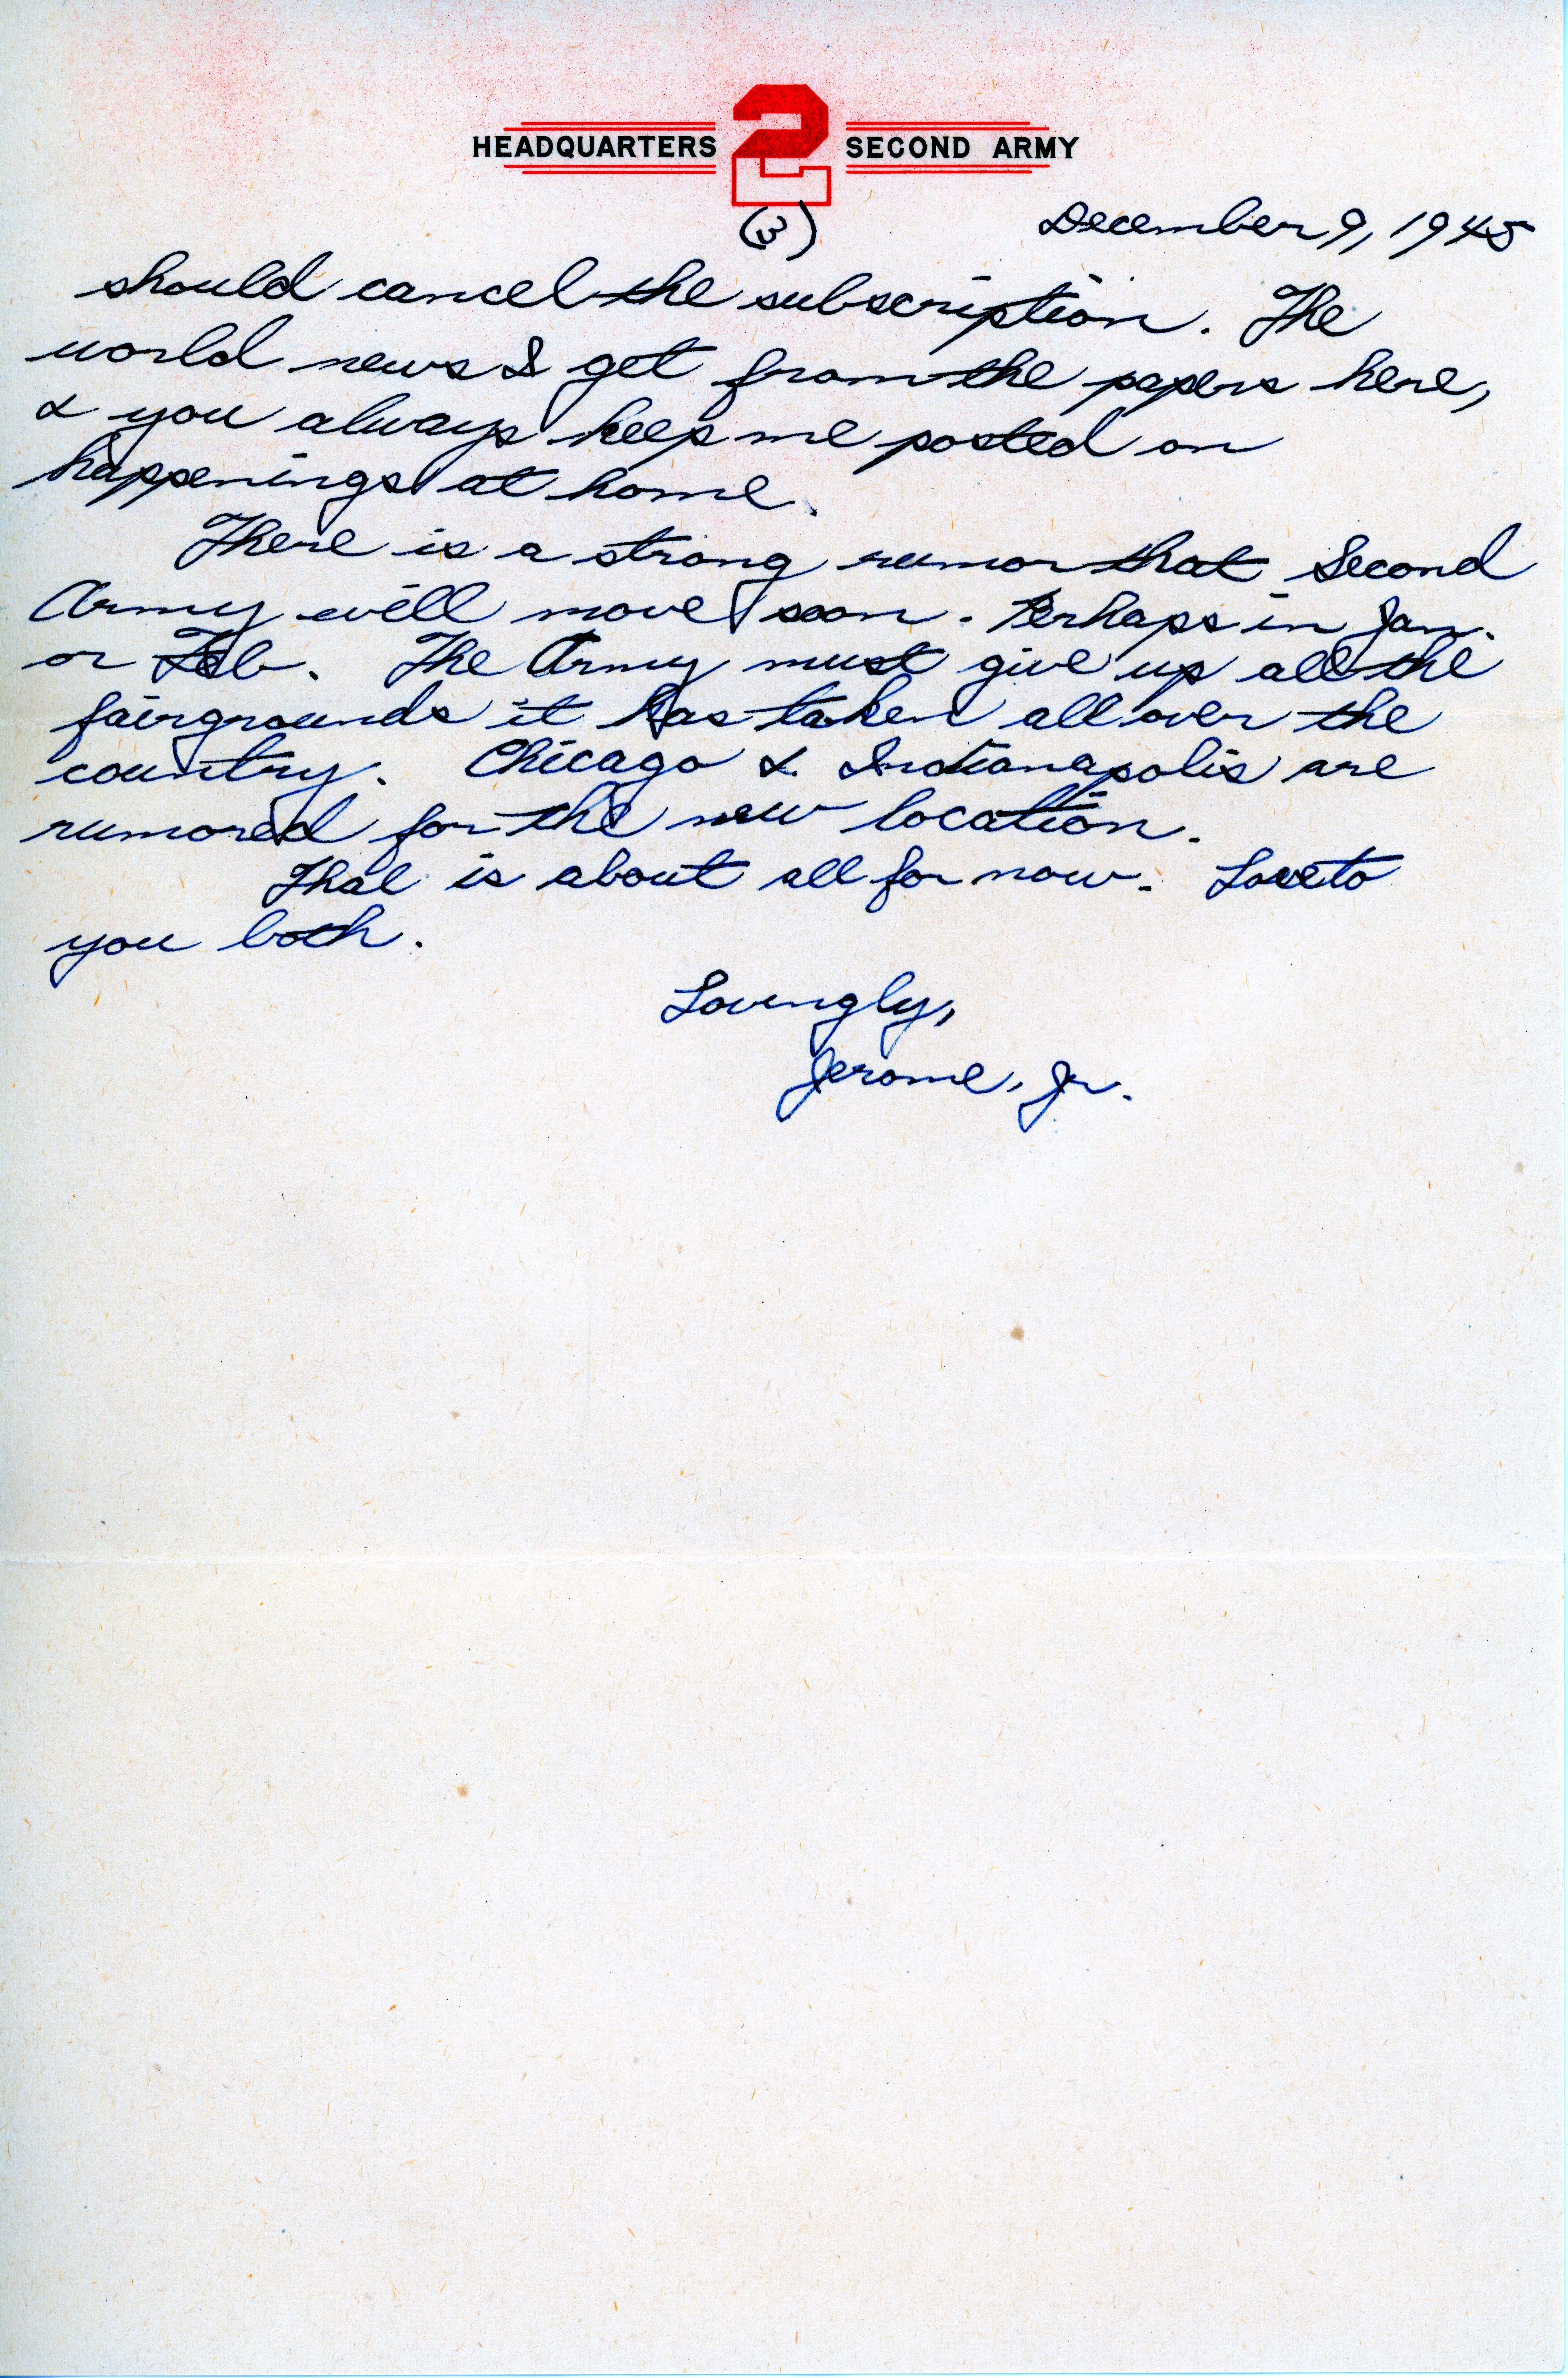 HEADQUARTERS 2 SECOND ARMY
(3) December 9, 1945
should cancel the subscription. The
world news I get from the papers here,
& you always keep me posted on
happenings at home.
There is a strong rumor that Second
Army will move soon. Perhaps in Jan.
or Feb. The Army must give up all the
fairgrounds it has taken all over the
country. Chicago & Indianapolis are
rumored for the new location.
That is about all for now. Love to
you both.
Lovingly,
Jerome, Jr.